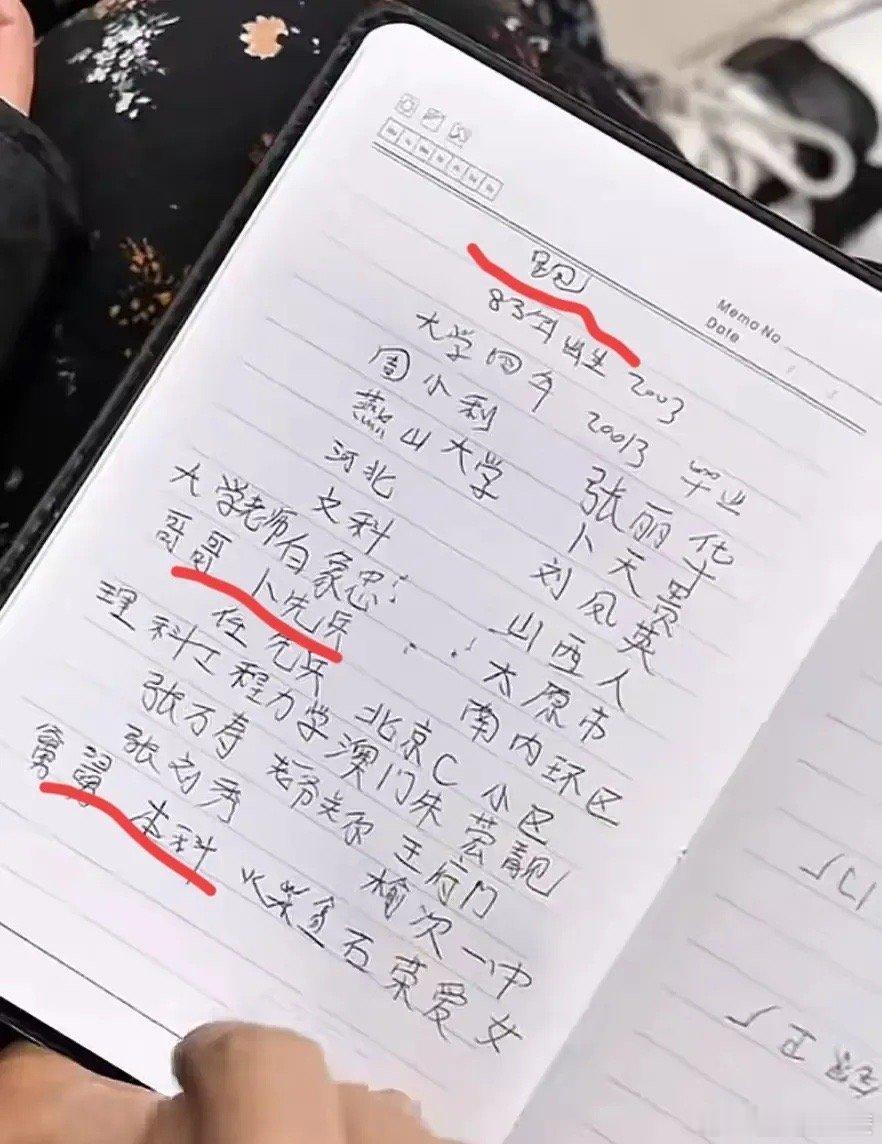 跑
83年出生 2003
大学四年 20013 毕业
周小利 张丽华
燕山大学 卜天贵
河北 刘凤英
文科 山西人
大学老师白象忠: 太原市
哥哥 卜先兵 南内环区
任先兵 北京C小区
理科工程力学澳门朱芸靓
张万寿 王府门
张刘秀 榆次一中
舅舅 本科 石荣爱女
Memo No
Date